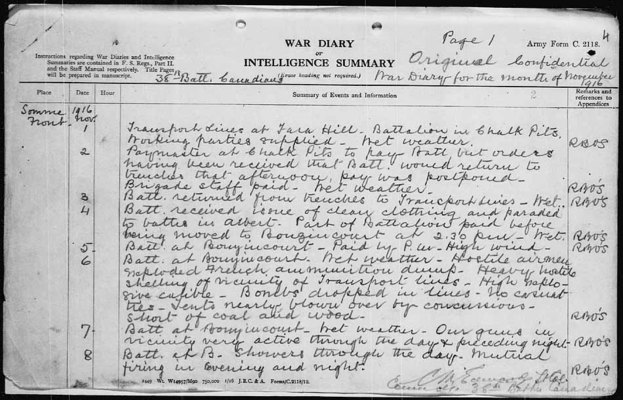 Page 1
4
WAR DIARY
or
INTELLIGENCE SUMMARY
Army Form C. 2118.
Instructions regarding War Diaries and Intelligence
Summaries are contained in F. S. Regs., Part II.
and the Staff Manual respectively. Title Pages
will be prepared in manuscript.
Original Confidential
38th Batt. Canadians
(Erase heading not required.)
War Diary for the month of November
1916
Place
Date
Hour
Summary of Events and Information
2
Remarks and
references to
Appendices
Somme
Front.
1916
Nov.
1 Transport Lines at Tara Hill. Battalion in Chalk Pits.
Working parties supplied - Wet weather.
2 Paymaster at Chalk Pits to pay Batt but orders
having been received that Batt. would return to
trenches that afternoon, pay was postponed.
Brigade staff paid - Wet weather.
3 Batt. returned from trenches to Transport Lines - Wet.
4 Batt. received issue of clean clothing and paraded
to baths in Albert. Part of Battalion paid before
being moved to Bouzincourt at 2.30 p.m. - Wet.
5. Batt. at Bouzincourt - Paid by P.M. - High wind -
6 Batt. at Bouzincourt. Wet weather - Hostile airmen
exploded French ammunition dump. Heavy hostile
shelling of vicinity of Transport lines - High explo-
sive - Bombs dropped in lines - No casual
ties - Tents nearly blown over by concussions -
Short of coal and wood -
7. Batt at Bouzincourt - Wet weather - Our guns in
vicinity very active through the day & preceding night -
8 Batt. at B. Showers through the day. Mutual
firing in evening and night.
38th Battn Canadians
Forms/C.2118/12.